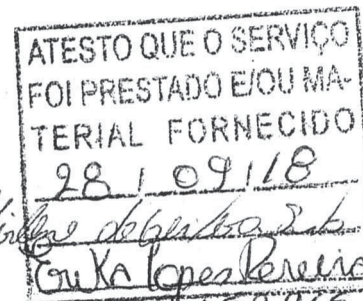 ATESTO QUE O SERVIÇO
FOI PRESTADO E/OU MA-
TERIAL FORNECIDO
28 / 09 / 18
Erika Lopes Pereira